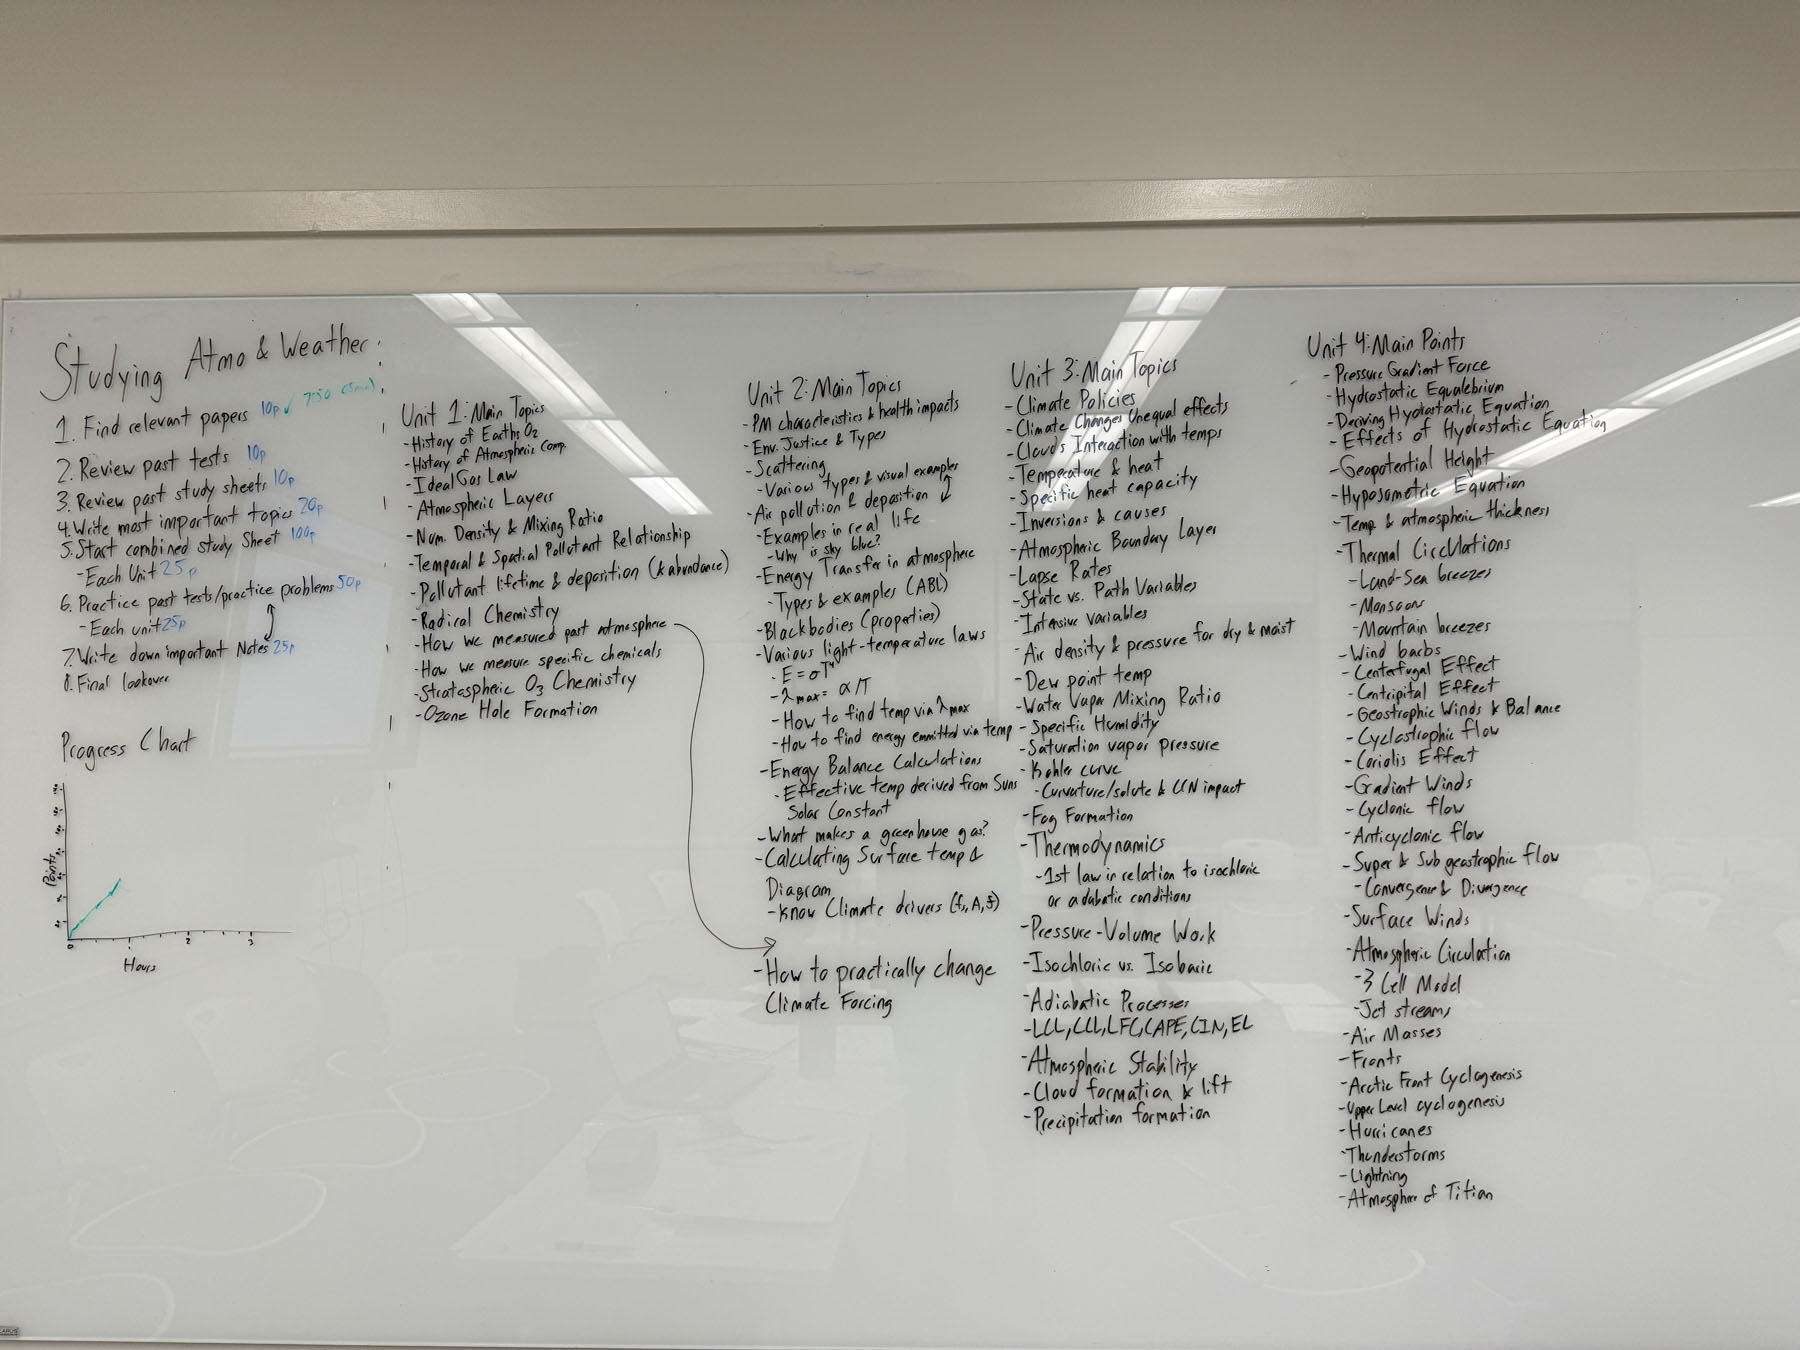 Studying Atmo & Weather:
1. Find relevant papers 10p ✓ 7:50
2. Review past tests 10p
3. Review past study sheets 10p
4. Write most important topics 20p
5. Start combined study Sheet 100p
- Each Unit 25p
6. Practice past tests/practice problems 50p
- Each unit 25p
7. Write down important Notes 25p
8. Final lookover
Progress Chart
Points
0 1 2 3
Hours
Unit 1: Main Topics
- History of Earths O2
- History of Atmospheric Comp.
- Ideal Gas Law
- Atmospheric Layers
- Num. Density & Mixing Ratio
- Temporal & Spatial Pollutant Relationship
- Pollutant lifetime & deposition (& abundance)
- Radical Chemistry
- How we measured past atmosphere
- How we measure specific chemicals
- Stratospheric O3 Chemistry
- Ozone Hole Formation
Unit 2: Main Topics
- PM characteristics & health impacts
- Env. Justice & Types
- Scattering
- Various types & visual examples
- Air pollution & deposition
- Examples in real life
- Why is sky blue?
- Energy Transfer in atmosphere
- Types & examples (ABL)
- Blackbodies (properties)
- Various light-temperature laws
- E = σT⁴
- λmax = α/T
- How to find temp via λmax
- How to find energy emmitted via temp
- Energy Balance Calculations
- Effective temp derived from Suns
Solar Constant
- What makes a greenhouse gas?
- Calculating Surface temp &
Diagram
- Know Climate drivers (fs, A, f)
- How to practically change
Climate Forcing
Unit 3: Main Topics
- Climate Policies
- Climate Changes Unequal effects
- Clouds Interaction with temps
- Temperature & heat
- Specific heat capacity
- Inversions & causes
- Atmospheric Boundary Layer
- Lapse Rates
- State vs. Path Variables
- Intensive variables
- Air density & pressure for dry & moist
- Dew point temp
- Water Vapor Mixing Ratio
- Specific Humidity
- Saturation vapor pressure
- Kohler curve
- Curvature/solute & CCN impact
- Fog Formation
- Thermodynamics
- 1st law in relation to isochloric
or adabatic conditions
- Pressure-Volume Work
- Isochloric vs. Isobaric
- Adiabatic Processes
- LCL, CCL, LFC, CAPE, CIN, EL
- Atmospheric Stability
- Cloud formation & lift
- Precipitation formation
Unit 4: Main Points
- Pressure Gradient Force
- Hydrostatic Equalebrium
- Deriving Hydrostatic Equation
- Effects of Hydrostatic Equation
- Geopotential Height
- Hyposometric Equation
- Temp & atmospheric thickness
- Thermal Circulations
- Land-Sea breezes
- Monsoons
- Mountain breezes
- Wind barbs
- Centerfugal Effect
- Centripital Effect
- Geostrophic Winds & Balance
- Cyclostrophic flow
- Coriolis Effect
- Gradient Winds
- Cyclonic flow
- Anticyclonic flow
- Super & Sub geostrophic flow
- Convergence & Divergence
- Surface Winds
- Atmospheric Circulation
- 3 Cell Model
- Jet streams
- Air Masses
- Fronts
- Arctic Front Cyclogenesis
- Upper Level cyclogenesis
- Hurricanes
- Thunderstorms
- Lightning
- Atmosphere of Titian